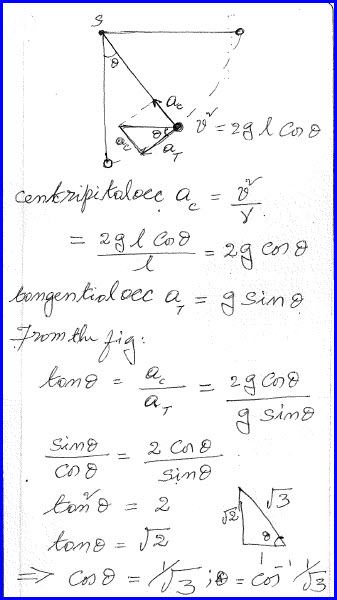 S
θ
a_c
θ
a_c
a_T
v² = 2gl Cosθ
centripital acc. a_c = v²/r
= 2gl Cosθ / l = 2g cosθ
tangential acc a_T = g sinθ
From the fig:
tanθ = a_c / a_T = 2g Cosθ / g sinθ
sinθ / cosθ = 2 Cosθ / sinθ
tan²θ = 2
tanθ = √2
√2
√3
θ
1
⇒ Cosθ = 1/√3 ; θ = cos⁻¹ 1/√3